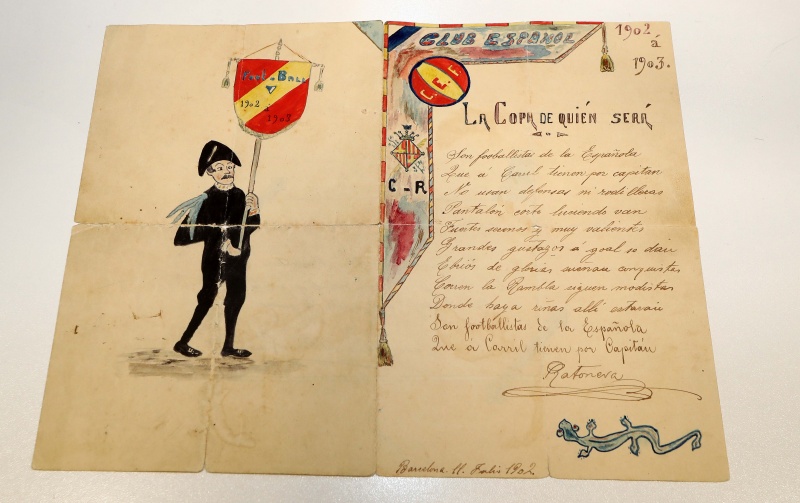 Foot-Ball
1902
á
1903
CLUB ESPAÑOL
1902
á
1903.
C.E.F.
C-R
LA COPA DE QUIÉN SERÁ
Son fooballista de la Española
Que a Carril tienen por capitan
No usan defensas ni rodilleras
Pantalon corto luciendo van
Fuertes y muy valientes
Grandes gustazos á goal se dan
Ebriós de glorias sueñan conquistas
Corren la Rambla siguen modistas
Donde haya riñas allí estaran
Son footballista de la Española
Que a Carril tienen por Capitan
Ratonera
Barcelona 11. Julio 1902